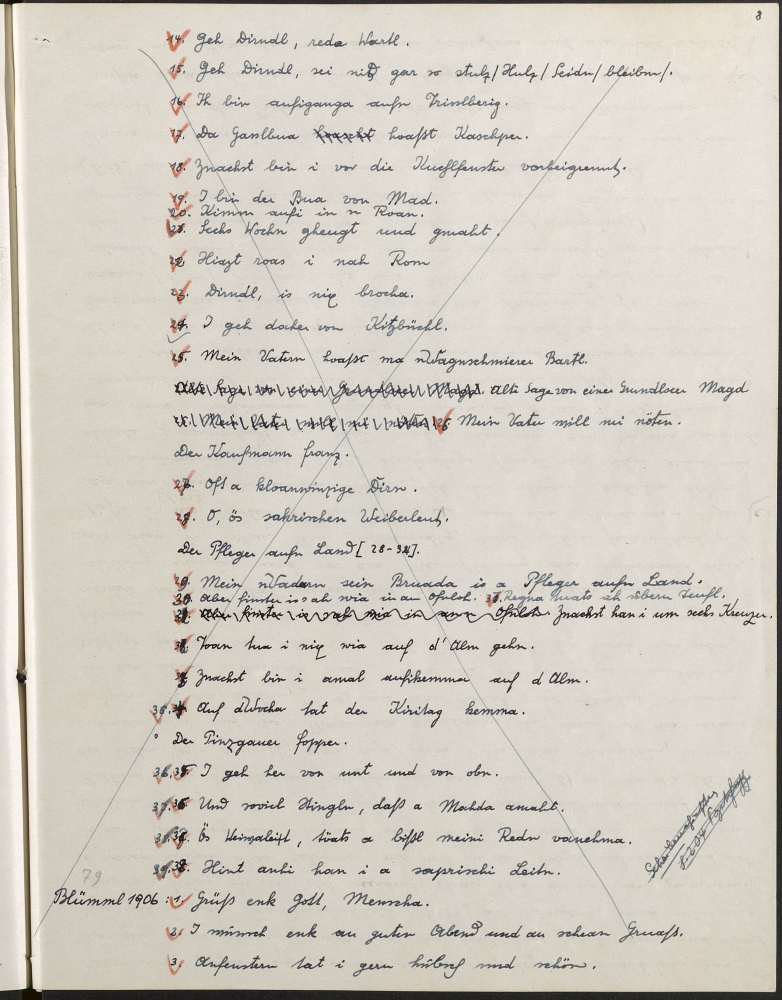 8
14. Geh Dirndl, reda Wartl.
15. Geh Dirndl, sei nit gar so stulz/Hulz/Seidn/bleibm/.
16. Ih bin aufiganga aufn
17. Da Gasslbua hoaßt Kaschper.
18. Znachst bin i vor die Kuchlfenster vorbeigrennt.
19. I bin der Bua von Mad.
20. Kimm aufi in n Roan.
21. Sechs Wochn gheugt und gmaht.
22. Hiazt roas i nah Rom
23. Dirndl, is nix brocha.
24. I geh daher von Kitzbüchl.
25. Mein Vatern hoaßt ma nWagnschmierer Bartl.
Alte Sage von einer Grundlseer Magd
26. Mein Vater will mi nöten.
Der Kaufmann Franz.
27. Oft a kloanwinzige Dirn.
28. O, ös sakrischen Weiberleut.
Der Pfleger aufn Land [28-34].
29. Mein nVadern sein Bruada is a Pfleger aufn Land.
30. Aber finster is s ah wia in an Ofnloh. 31. Regna tuats ah übern Teufl.
Znachst han i um sechs Kreuzer.
Ioan tua i nix wia auf d'Alm gehn.
Znachst bin i amal aufikemma auf d Alm.
35. Auf dWocha tat der Kiritag kemma.
Der Pinzgauer Fopper.
36. I geh her von unt und von obn.
37. Und soviel Dingln, daß a Mahda amaht.
38. Ös tüats a bißl meini Redn vanehma.
39. Hint auhi han i a saprischi Leitn.
79
Blümml 1906: 1. Grüß enk Gott, Menscha.
2. I wünsch enk an guten Abend und an schean Gruaß.
3. Anfenstern tat i gern hübsch und schön.